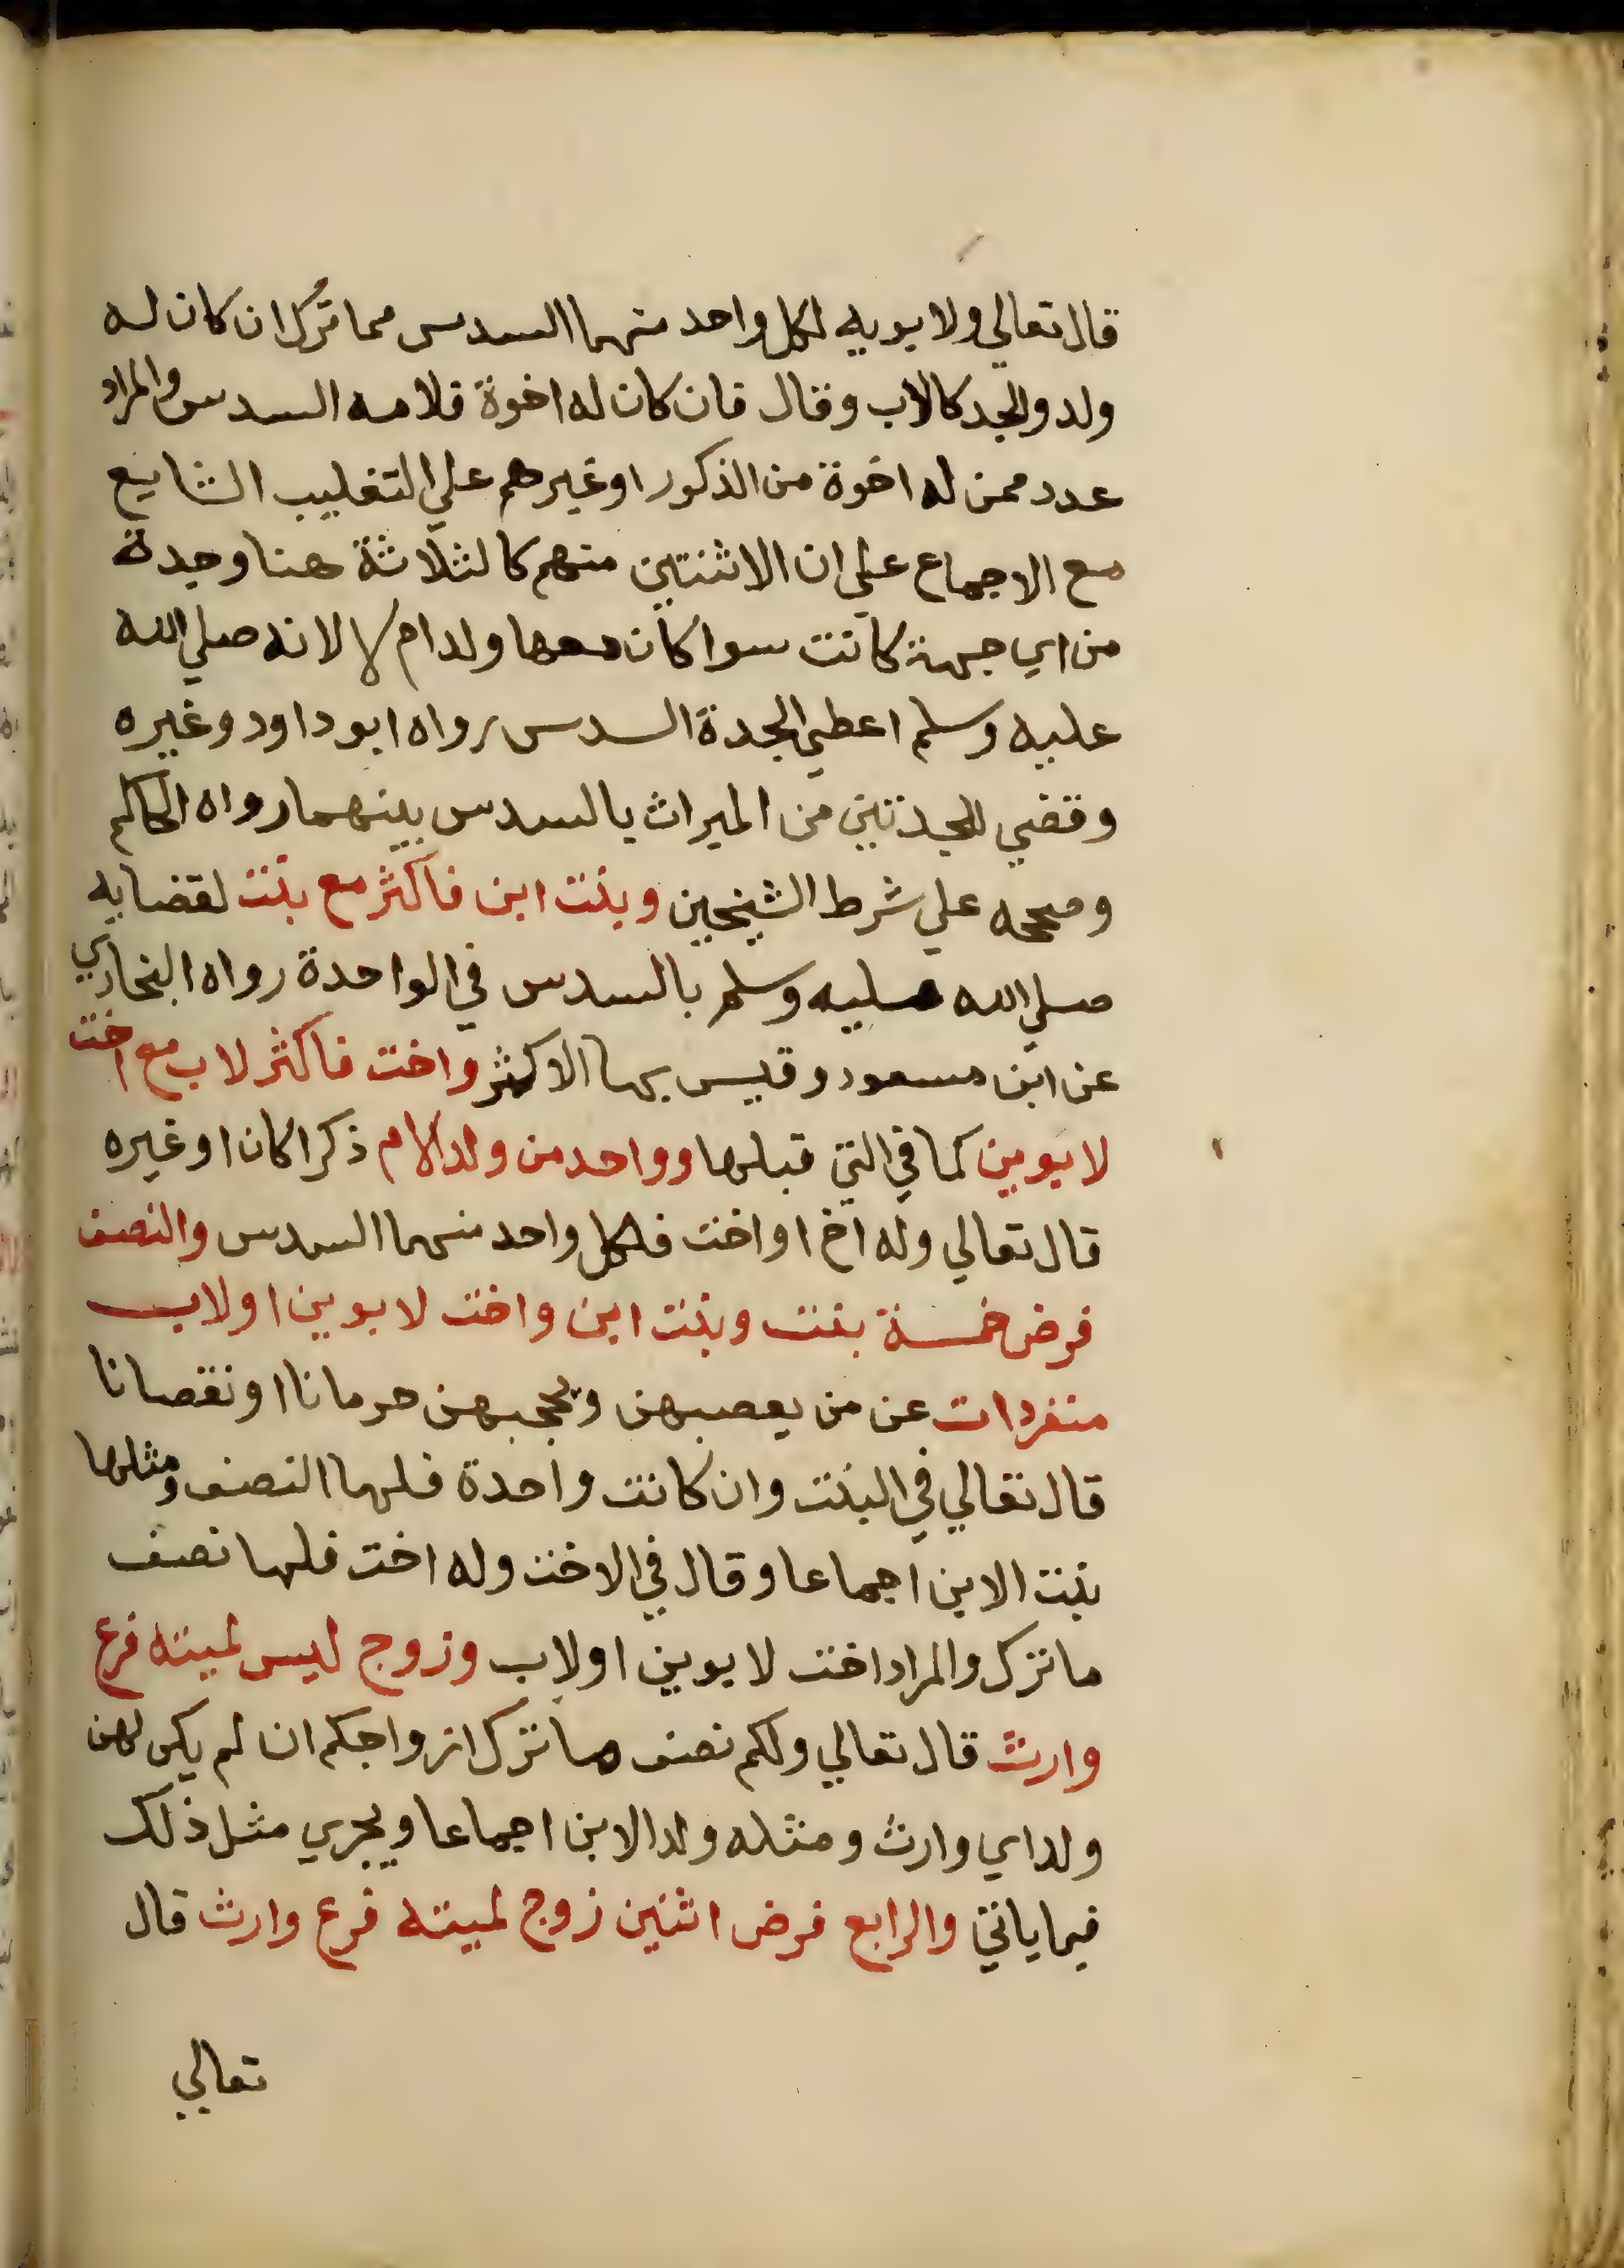 قال تعالي ولابويه لكل واحد منهما السدس مما ترك ان كان له
ولد والجد كالاب وقال فان كان له اخوة فلامه السدس والمراد
عدد ممن له اخوة من الذكور او غيرهم علي التغليب الشايع
مع الاجماع علي ان الاثنتين منهم كالثلاثة هنا وجدة
من اي جهة كانت سوا كان معها ولد ام لا لانه صلي الله
عليه وسلم اعطي الجدة السدس رواه ابو داود وغيره
وقضي للجدتين من الميراث بالسدس بينهما رواه الحاكم
وصححه علي شرط الشيخين وبنت ابن فاكثر مع بنت لقضايه
صلي الله عليه وسلم بالسدس في الواحدة رواه البخاري
عن ابن مسعود وقيس بها الاكثر واخت فاكثر لاب مع اخت
لابوين كما في التي قبلها وواحد من ولد الام ذكرا كان او غيره
قال تعالي وله اخ او اخت فلكل واحد منهما السدس والنصف
فرض خمسة بنت وبنت ابن واخت لابوين اولاب
منفردات عن من يعصبهن ويحجبهن حرمانا او نقصانا
قال تعالي في البنت وان كانت واحدة فلها النصف ومثلها
بنت الابن اجماعا وقال في الاخت وله اخت فلها نصف
ما ترك والمراد اخت لابوين اولاب وزوج ليس لميته فرع
وارث قال تعالي ولكم نصف ما ترك ازواجكم ان لم يكن لهن
ولد اي وارث ومثله ولد الابن اجماعا ويجري مثل ذلك
فيما ياتي والرابع فرض اثنين زوج لميته فرع وارث قال
تعالي